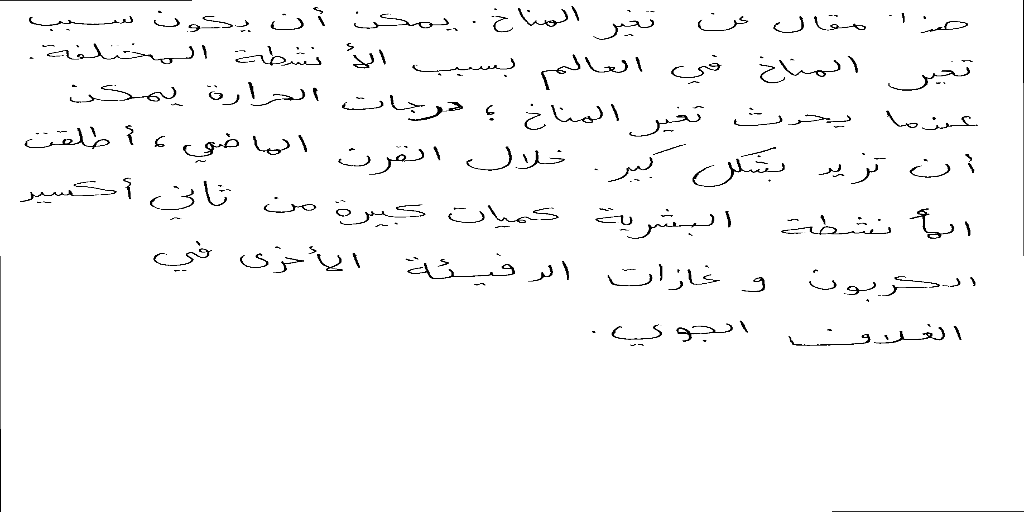 هذا مقال عن تغير المناخ. يمكن أن يكون سبب
تغير المناخ في العالم بسبب الأنشطة المختلفة.
عندما يحدث تغير المناخ ؛ درجات الحرارة يمكن
أن تزيد بشكل كبير. خلال القرن الماضي ، أطلقت
الأنشطة البشرية كميات كبيرة من ثاني أكسيد
الكربون و غازات الدفيئة الأخرى في
الغلاف الجوي.